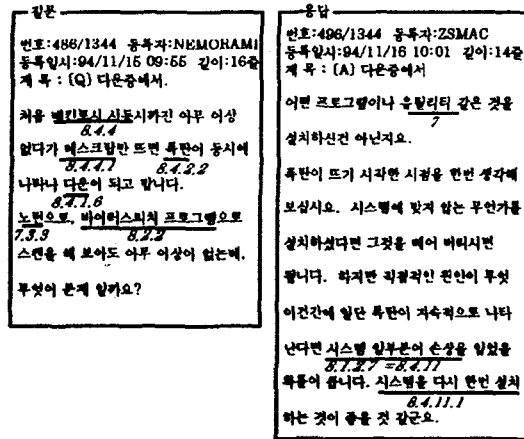 질문
번호:486/1344 등록자:NEMORAMI
등록일시:94/11/15 09:55 길이:16줄
제 목 : [Q] 다운중에서.
처음 매킨토시 시동시까진 아무 이상
8.4.4
없다가 데스크탑만 뜨면 폭탄이 동시에
8.4.4.1 8.4.2.2
나타나 다운이 되고 맙니다.
8.4.1.6
노턴으로, 바이러스퇴치 프로그램으로
7.3.3 8.2.2
스캔을 해 보아도 아무 이상이 없는데,
무엇이 문제 일까요?
응답
번호:496/1344 등록자:ZSMAC
등록일시:94/11/16 10:01 길이:14줄
제 목 : [A] 다운중에서
어떤 프로그램이나 유틸리티 같은 것을
7
설치하신건 아닌지요.
폭탄이 뜨기 시작한 시점을 한번 생각해
보십시요. 시스템에 맞지 않는 무언가를
설치하셨다면 그것을 빼어 버리시면
됩니다. 하지만 직접적인 원인이 무엇
이건간에 일단 폭탄이 지속적으로 나타
난다면 시스템 일부분이 손상을 입었을
8.1.2.7 =8.4.11
확률이 큽니다. 시스템을 다시 한번 설치
8.4.11.1
하는 것이 좋을 것 같군요.